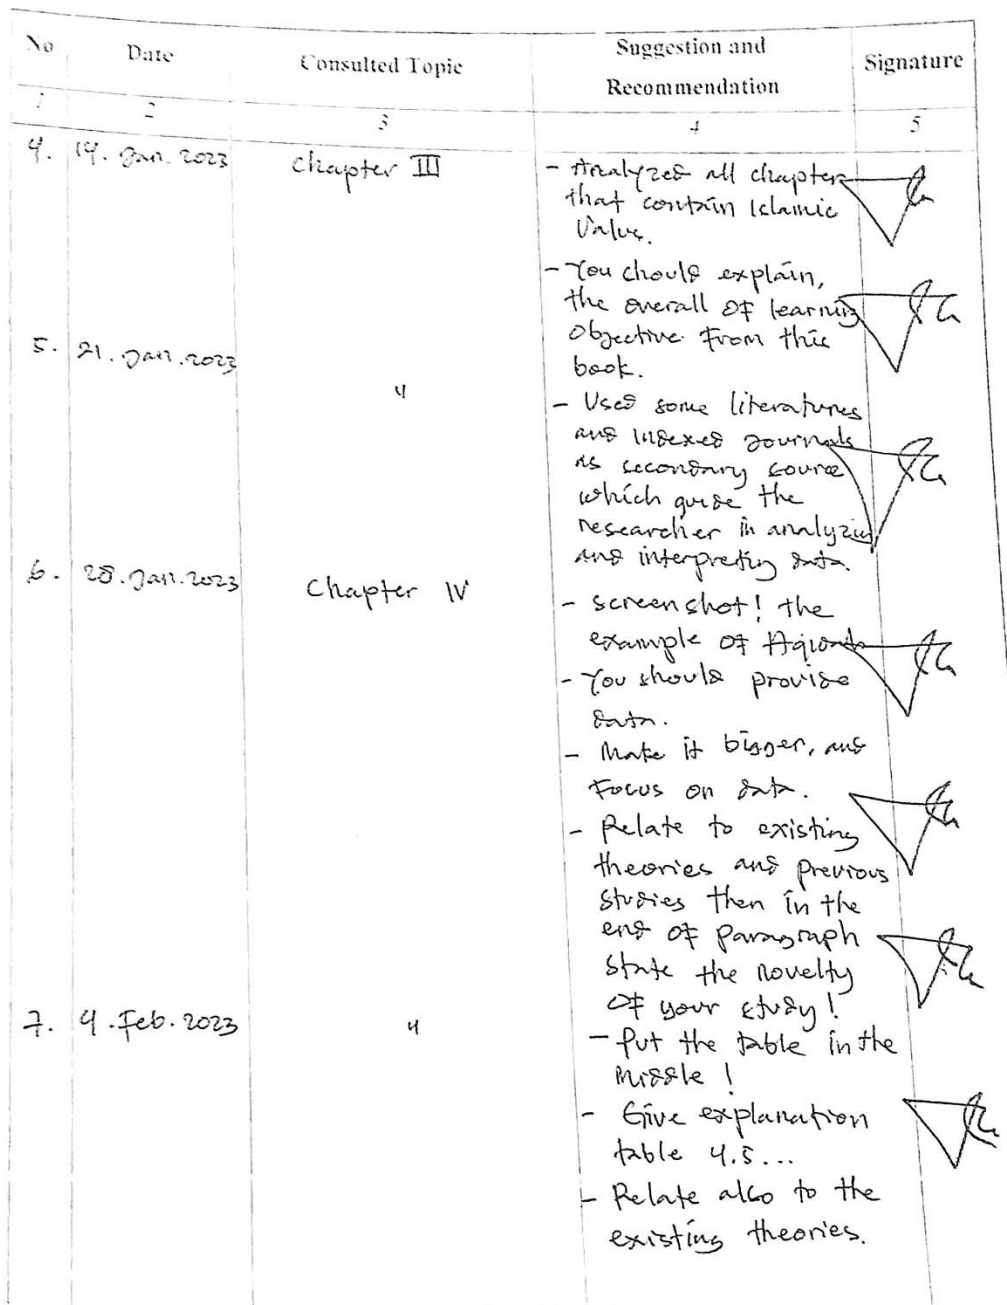 No Date Consulted Topic Suggestion and Recommendation Signature
1 2 3 4 5
4. 14. Jan. 2023 Chapter III - Analyzed all chapters
that contain Islamic
Value.
- You should explain,
the overall of learning
objective from this
book.
5. 21. Jan. 2023 "
- Used some literatures
and indexed journals
as secondary source
which guide the
researcher in analyzing
and interpreting data.
6. 28. Jan. 2023 Chapter IV - screenshot! the
example of
- You should provide
data.
- Make it bigger, and
Focus on data.
- Relate to existing
theories and previous
studies then in the
end of paragraph
state the novelty
of your study!
7. 4. Feb. 2023 "
- Put the table in the
Middle!
- Give explanation
table 4.5...
- Relate also to the
existing theories.